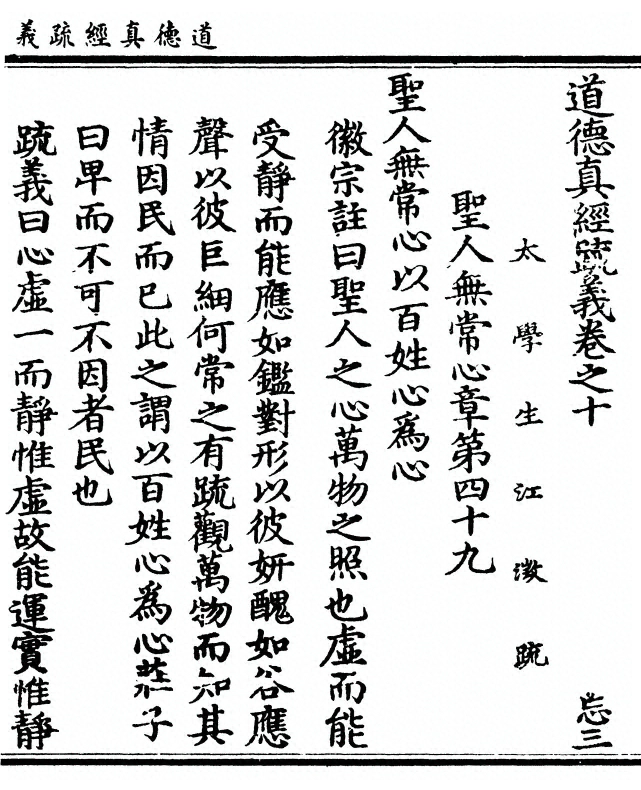 道德真經疏義
道德真經疏義卷之十 忘三
太學生江澂疏
聖人無常心章第四十九
聖人無常心以百姓心爲心
徽宗註曰聖人之心萬物之照也虛而能
受靜而能應如鑑對形以彼姸醜如谷應
聲以彼巨細何常之有疏觀萬物而知其
情因民而已此之謂以百姓心爲心莊子
曰卑而不可不因者民也
疏義曰心虛一而靜惟虛故能運實惟靜